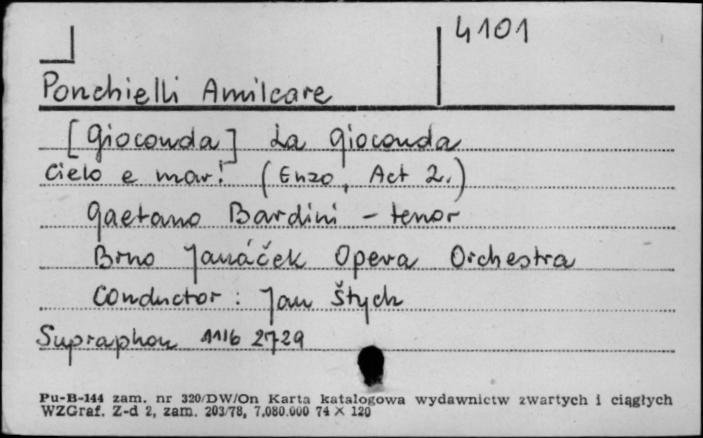 4101
Ponchielli Amilcare
[Gioconda] La Gioconda
Cielo e mar! (Enzo, Act 2.)
Gaetano Bardini - tenor
Brno Janáček Opera Orchestra
Conductor: Jan Štych
Supraphon 1116 2729
Pu-B-144 zam. nr 320/DW/On Karta katalogowa wydawnictw zwartych i ciągłych
WZGraf. Z-d 2, zam. 203/78, 7.080.000 74 × 120